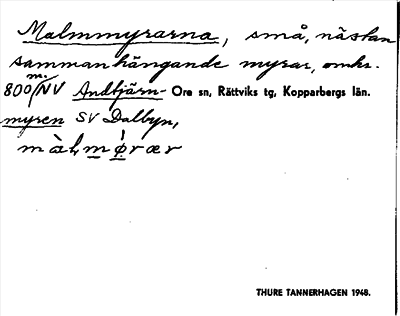 Malmmyrarna, små, nästan
sammanhängande myrar, omkr.
800 m. NV Andtjärn- Ore sn, Rättviks tg, Kopparbergs län.
myren SV Dalbyn,
màlmø̀rær
THURE TANNERHAGEN 1948.